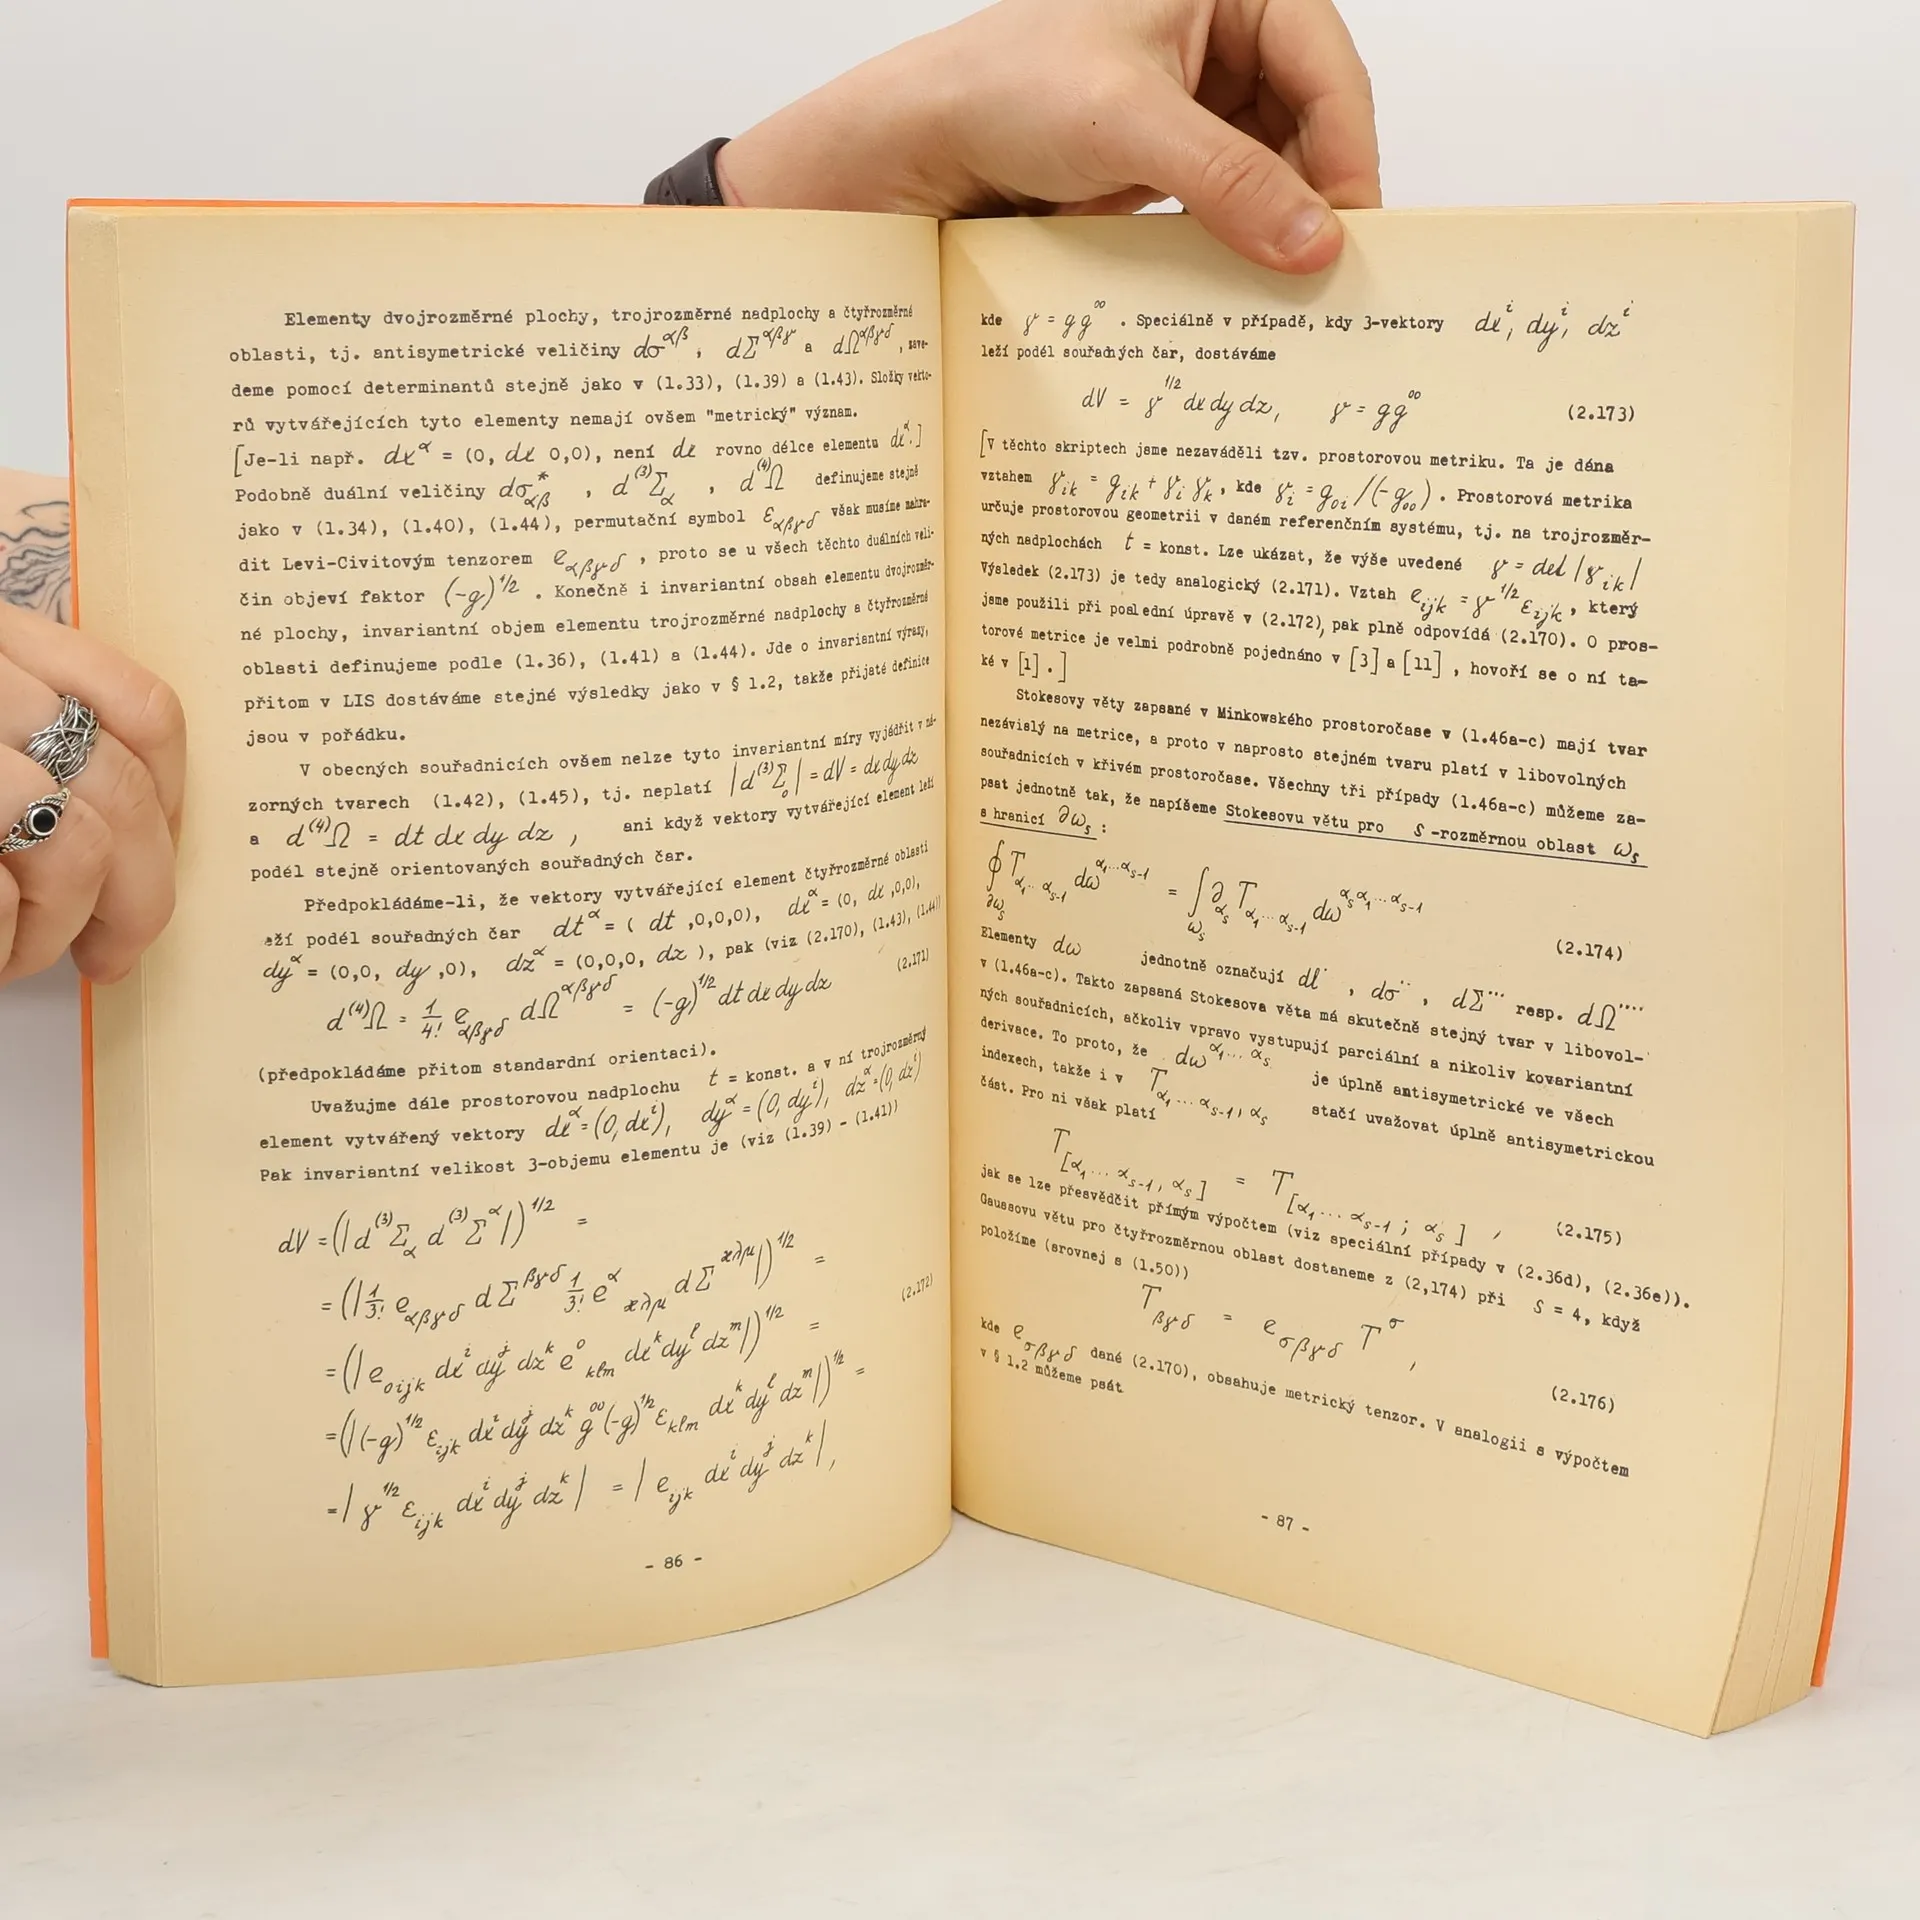 Elementy dvojrozměrné plochy, trojrozměrné nadplochy a čtyřrozměrné
oblasti, tj. antisymetrické veličiny dσ^αβ, dΣ^αβγ a dΩ^αβγδ, zave-
deme pomocí determinantů stejně jako v (1.33), (1.39) a (1.43). Složky vekto-
rů vytvářejících tyto elementy nemají ovšem "metrický" význam.
[Je-li např. dx^α = (0, dx 0,0), není dx rovno délce elementu dx^α.]
Podobně duální veličiny dσ*_αβ, d^(3)Σ_α, d^(4)Ω definujeme stejně
jako v (1.34), (1.40), (1.44), permutační symbol ε_αβγδ však musíme nahra-
dit Levi-Civitovým tenzorem e_αβγδ, proto se u všech těchto duálních veli-
čin objeví faktor (-g)^1/2. Konečně i invariantní obsah elementu dvojrozměr-
né plochy, invariantní objem elementu trojrozměrné nadplochy a čtyřrozměrné
oblasti definujeme podle (1.36), (1.41) a (1.44). Jde o invariantní výrazy,
přitom v LIS dostáváme stejné výsledky jako v § 1.2, takže přijaté definice
jsou v pořádku.
V obecných souřadnicích ovšem nelze tyto invariantní míry vyjádřit v ná-
zorných tvarech (1.42), (1.45), tj. neplatí |d^(3)Σ_0| = dV = dxdydz
a d^(4)Ω = dt dx dy dz, ani když vektory vytvářející element leží
podél stejně orientovaných souřadných čar.
Předpokládáme-li, že vektory vytvářející element čtyřrozměrné oblasti
eží podél souřadných čar dt^α = ( dt ,0,0,0), dx^α = (0, dx ,0,0),
dy^α = (0,0, dy ,0), dz^α = (0,0,0, dz ), pak (viz (2.170), (1.43), (1.44))
d^(4)Ω = 1/4! e_αβγδ dΩ^αβγδ = (-g)^1/2 dt dx dy dz (2.171)
(předpokládáme přitom standardní orientaci).
Uvažujme dále prostorovou nadplochu t = konst. a v ní trojrozměrný
element vytvářený vektory dx^α = (0, dx^i), dy^α = (0, dy^i), dz^α = (0, dz^i)
Pak invariantní velikost 3-objemu elementu je (viz (1.39) - (1.41))
dV = (|d^(3)Σ_α d^(3)Σ^α|)^1/2 =
= (|1/3! e_αβγδ dΣ^βγδ 1/3! e^α_ϰλμ dΣ^ϰλμ|)^1/2 = (2.172)
= (|e_0ijk dx^i dy^j dz^k e^0_klm dx^k dy^l dz^m|)^1/2 =
= (|(-g)^1/2 ε_ijk dx^i dy^j dz^k g^00 (-g)^1/2 ε_klm dx^k dy^l dz^m|)^1/2 =
= |γ^1/2 ε_ijk dx^i dy^j dz^k| = |e_ijk dx^i dy^j dz^k|,
- 86 -
kde γ = gg^00. Speciálně v případě, kdy 3-vektory dx^i, dy^i, dz^i
leží podél souřadných čar, dostáváme
dV = γ^1/2 dxdydz, γ = gg^00 (2.173)
[V těchto skriptech jsme nezaváděli tzv. prostorovou metriku. Ta je dána
vztahem γ_ik = g_ik + γ_i γ_k, kde γ_i = g_0i /(-g_00). Prostorová metrika
určuje prostorovou geometrii v daném referenčním systému, tj. na trojrozměr-
ných nadplochách t = konst. Lze ukázat, že výše uvedené γ = det |γ_ik|
Výsledek (2.173) je tedy analogický (2.171). Vztah e_ijk = γ^1/2 ε_ijk, který
jsme použili při poslední úpravě v (2.172), pak plně odpovídá (2.170). O pros-
torové metrice je velmi podrobně pojednáno v [3] a [11], hovoří se o ní ta-
ké v [1].]
Stokesovy věty zapsané v Minkowského prostoročase v (1.46a-c) mají tvar
nezávislý na metrice, a proto v naprosto stejném tvaru platí v libovolných
souřadnicích v křivém prostoročase. Všechny tři případy (1.46a-c) můžeme za-
psat jednotně tak, že napíšeme Stokesovu větu pro s -rozměrnou oblast ω_s
s hranicí ∂ω_s :
∮_∂ω_s T_α₁...α_s-1 dω^α₁...α_s-1 = ∫_ω_s ∂_α_s T_α₁...α_s-1 dω^α_s α₁...α_s-1 (2.174)
Elementy dω jednotně označují dl^·, dσ^··, dΣ^··· resp. dΩ^····
v (1.46a-c). Takto zapsaná Stokesova věta má skutečně stejný tvar v libovol-
ných souřadnicích, ačkoliv vpravo vystupují parciální a nikoliv kovariantní
derivace. To proto, že dω^α₁...α_s je úplně antisymetrické ve všech
indexech, takže i v T_α₁...α_s-1,α_s stačí uvažovat úplně antisymetrickou
část. Pro ni však platí
T_[α₁...α_s-1,α_s] = T_[α₁...α_s-1;α_s], (2.175)
jak se lze přesvědčit přímým výpočtem (viz speciální případy v (2.36d), (2.36e)).
Gaussovu větu pro čtyřrozměrnou oblast dostaneme z (2,174) při s = 4, když
položíme (srovnej s (1.50))
T_βγδ = e_σβγδ T^σ, (2.176)
kde e_σβγδ dané (2.170), obsahuje metrický tenzor. V analogii s výpočtem
v § 1.2 můžeme psát
- 87 -